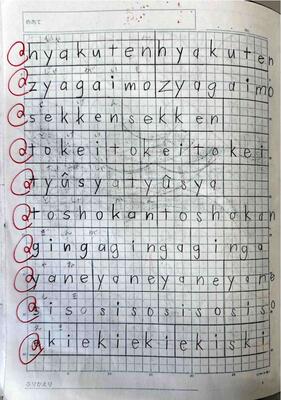 めあて
hyakutenhyakuten
zyagaimozyagaimo
sekkensekken
tokeitokeitokei
tyâsyatyâsya
toshokantoshokan
gingagingaginga
yaneyaneyaneyane
sisosisosisosiso
ekiekiekiekiski
ふりかえり